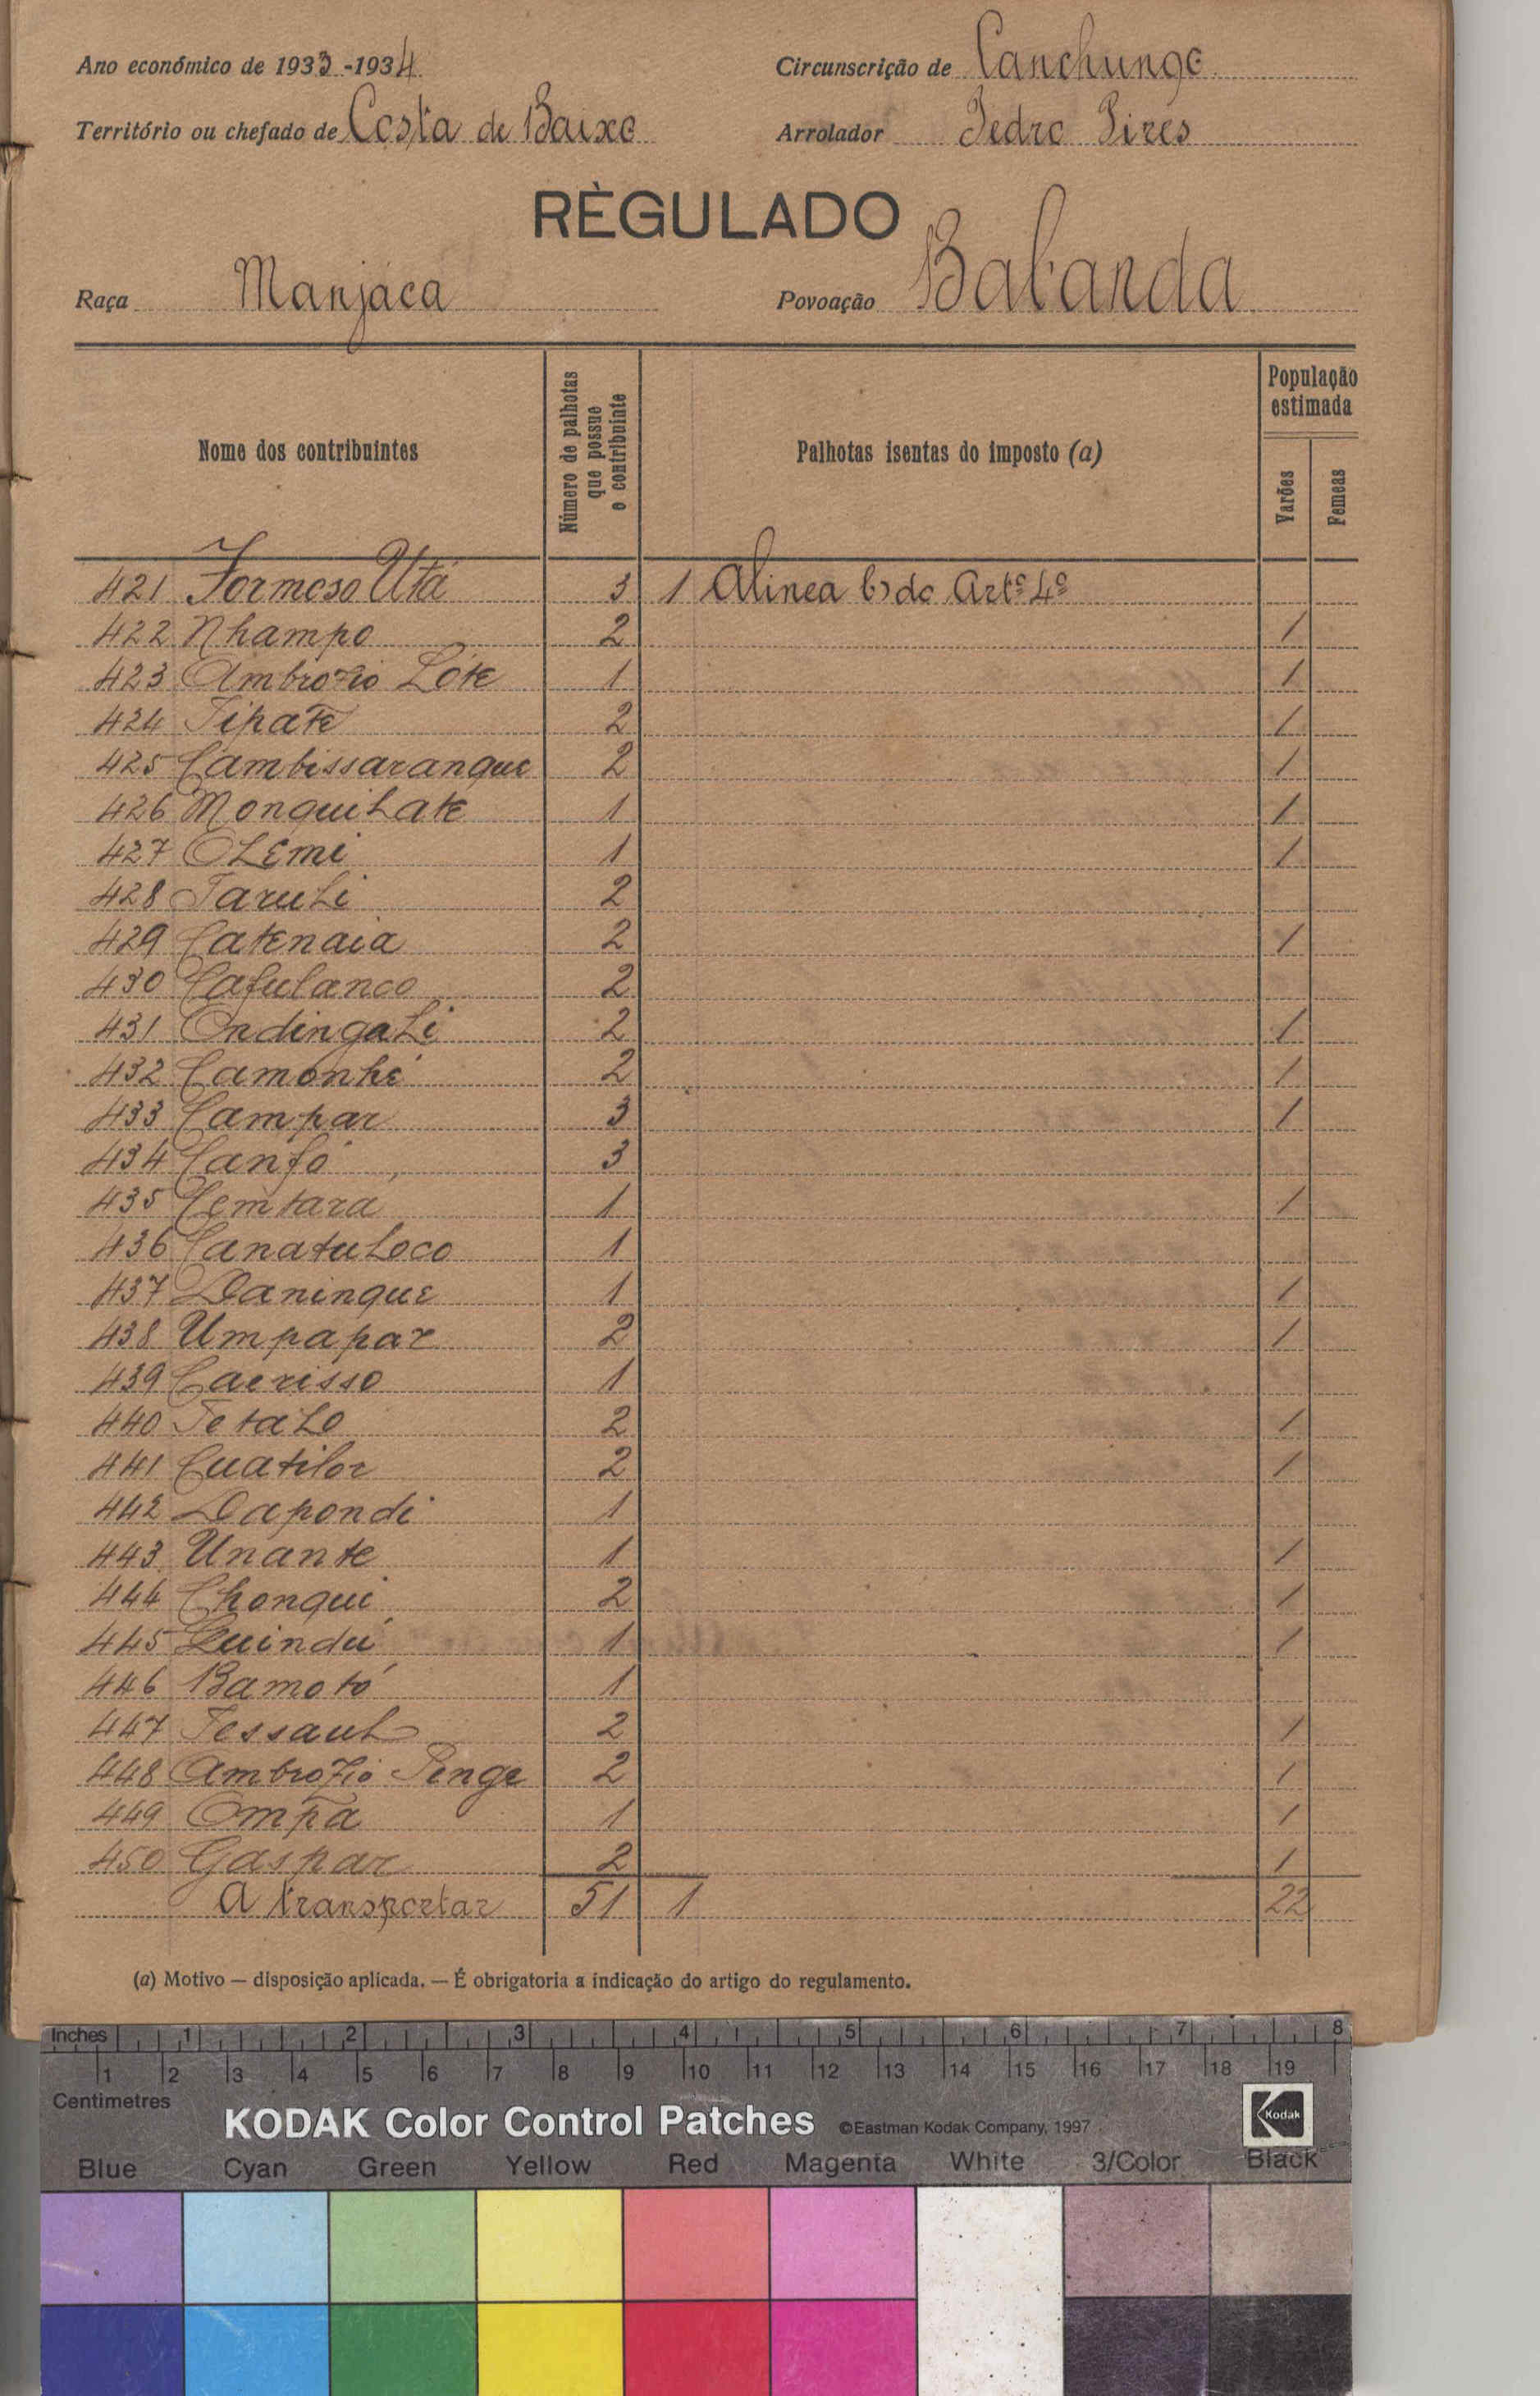 Ano económico de 1933-1934
Circunscrição de Canchungo
Território ou chefado de Costa de Baixo
Arrolador Pedro Pires
RÈGULADO
Raça Manjaca
Povoação Babanda
Nome dos contribuintes
Número de palhotas que possue o contribuinte
Palhotas isentas do imposto (a)
População estimada
Varões
Femeas
421 Formoso Utá 3 1 Alinea b) do Artº 4º
422 Nhampo 2 1
423 Ambrozio Lote 1 1
424 Tipate 2 1
425 Cambissaranque 2 1
426 Monquilate 1 1
427 Olemi 1 1
428 Taruli 2
429 Catenaia 2 1
430 Cafulanco 2
431 Ondingali 2 1
432 Camonhé 2 1
433 Campar 3 1
434 Canfó 3
435 Cemtara 1 1
436 Canatuloco 1
437 Daninque 1 1
438 Umpapar 2 1
439 Caerisso 1
440 Tetalo 2 1
441 Cuatilor 2 1
442 Dapondi 1
443 Unante 1 1
444 Chonqui 2 1
445 Quindú 1 1
446 Bamotó 1
447 Tessaul 2 1
448 Ambrozio Penge 2 1
449 Ompa 1 1
450 Gaspar 2 1
A transportar 51 1 22
(a) Motivo — disposição aplicada. — É obrigatoria a indicação do artigo do regulamento.
Inches 1 2 3 4 5 6 7 8
1 2 3 4 5 6 7 8 9 10 11 12 13 14 15 16 17 18 19
Centimetres
KODAK Color Control Patches ©Eastman Kodak Company, 1997
Kodak
Blue Cyan Green Yellow Red Magenta White 3/Color Black